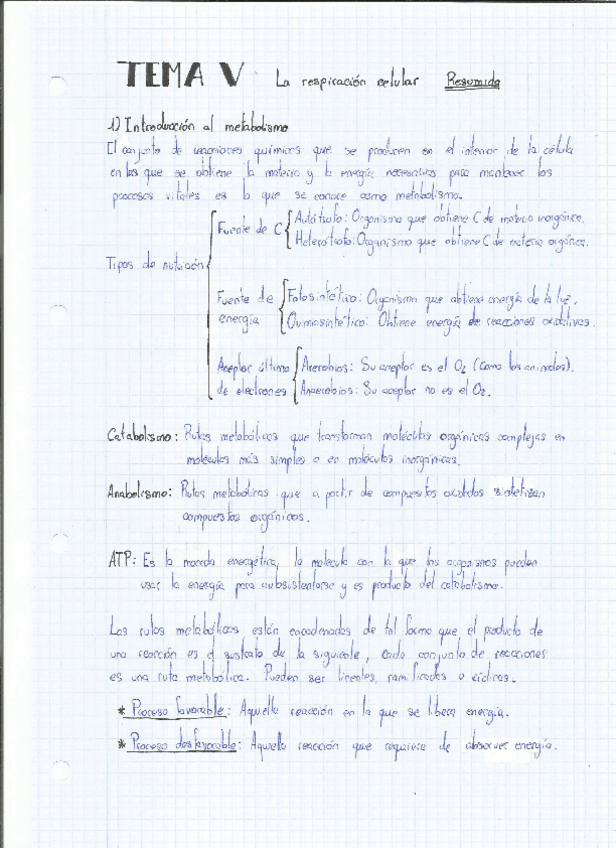 TEMA V La respiración celular Resumido
1) Introducción al metabolismo
El conjunto de reacciones químicas que se producen en el interior de la célula
en las que se obtiene la materia y la energía necesarias para mantener los
procesos vitales es lo que se conoce como metabolismo.
Tipos de nutrición
Fuente de C
Autótrofo: Organismo que obtiene C de materia inorgánica.
Heterótrofo: Organismo que obtiene C de materia orgánica.
Fuente de energía
Fotosintético: Organismo que obtiene energía de la luz.
Quimiosintético: Obtiene energía de reacciones oxidativas.
Aceptor último de electrones
Aerobios: Su aceptor es el O₂ (como los animales).
Anaerobios: Su aceptor no es el O₂.
Catabolismo: Rutas metabólicas que transforman moléculas orgánicas complejas en
moléculas más simples o en moléculas inorgánicas.
Anabolismo: Rutas metabólicas que a partir de compuestos oxidados sintetizan
compuestos orgánicos.
ATP: Es la moneda energética, la molécula con la que los organismos pueden
usar la energía para autosustentarse y es producto del catabolismo.
Las rutas metabólicas están encadenadas de tal forma que el producto de
una reacción es el sustrato de la siguiente, cada conjunto de reacciones
es una ruta metabólica. Pueden ser lineales, ramificadas o cíclicas.
* Proceso favorable: Aquella reacción en la que se libera energía.
* Proceso desfavorable: Aquella reacción que requiere de absorver energía.